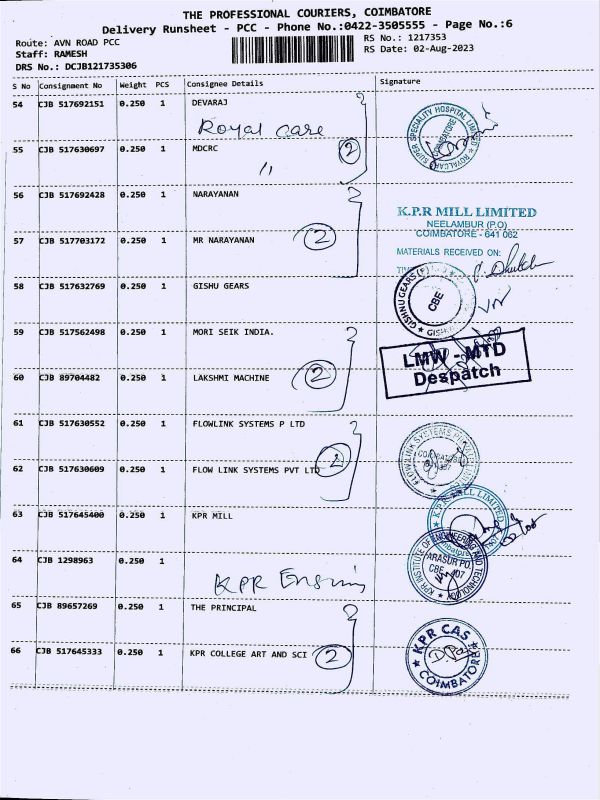 THE PROFESSIONAL COURIERS, COIMBATORE
Delivery Runsheet - PCC - Phone No.:0422-3505555 - Page No.:6
Route: AVN ROAD PCC
RS No.: 1217353
Staff: RAMESH
RS Date: 02-Aug-2023
DRS No.: DCJB121735306
S No Consignment No Weight PCS Consignee Details Signature
54 CJB 517692151 0.250 1 DEVARAJ
Royal care
55 CJB 517630697 0.250 1 MDCRC 2
"
SUPER SPECIALITY HOSPITAL LIMITED
COIMBATORE
56 CJB 517692428 0.250 1 NARAYANAN
K.P.R MILL LIMITED
NEELAMBUR (P.O)
COIMBATORE - 641 062
57 CJB 517703172 0.250 1 MR NARAYANAN 2
MATERIALS RECEIVED ON:
58 CJB 517632769 0.250 1 GISHU GEARS
GISHNU GEARS
CBE
59 CJB 517562498 0.250 1 MORI SEIK INDIA.
LMW - MTD
Despatch
60 CJB 89704482 0.250 1 LAKSHMI MACHINE 2
61 CJB 517630552 0.250 1 FLOWLINK SYSTEMS P LTD
FLOWLINK SYSTEMS
62 CJB 517630609 0.250 1 FLOW LINK SYSTEMS PVT LTD 2
63 CJB 517645400 0.250 1 KPR MILL
K.P.R. MILL LIMITED
64 CJB 1298963 0.250 1
KPR
KPR INSTITUTE OF ENGINEERING AND TECHNOLOGY
ARASUR PO.
CBE - 407
65 CJB 89657269 0.250 1 THE PRINCIPAL
66 CJB 517645333 0.250 1 KPR COLLEGE ART AND SCI 2
KPR CAS
COIMBATORE